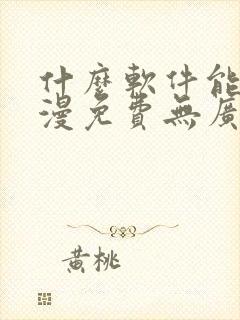 什麼軟件能
漫免費無廣
黃桃